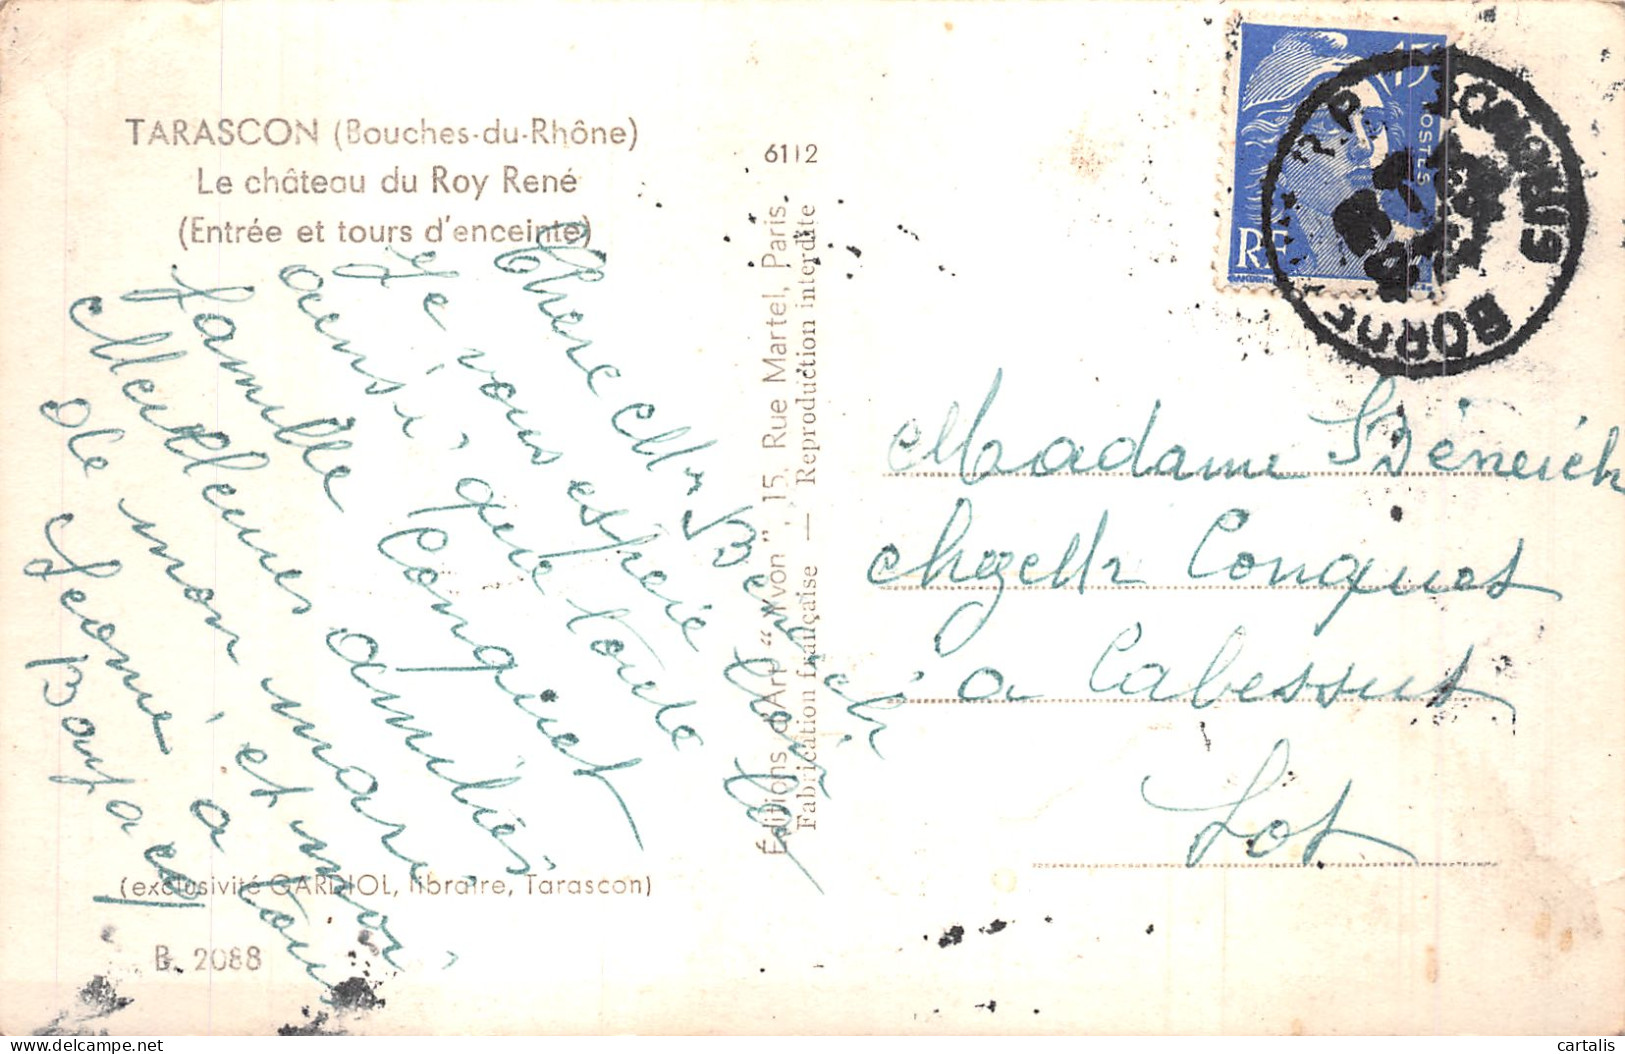 TARASCON (Bouches-du-Rhône)
Le château du Roy René
(Entrée et tours d'enceinte)
6112
Éditions d'Art "Yvon", 15, Rue Martel, Paris.
Fabrication française — Reproduction interdite
Chere Mm Benech
Je vous espere
ainsi que toute
famille Conquet
Meilleures amitiés
de mon mari
et moi
a tous
Leone
(exclusivité GARDIOL, libraire, Tarascon)
B. 2088
15
POSTES
RF
R.P.
Madame Béneich
chez Mr Conquet
a Cabessut
Lot
cartalis